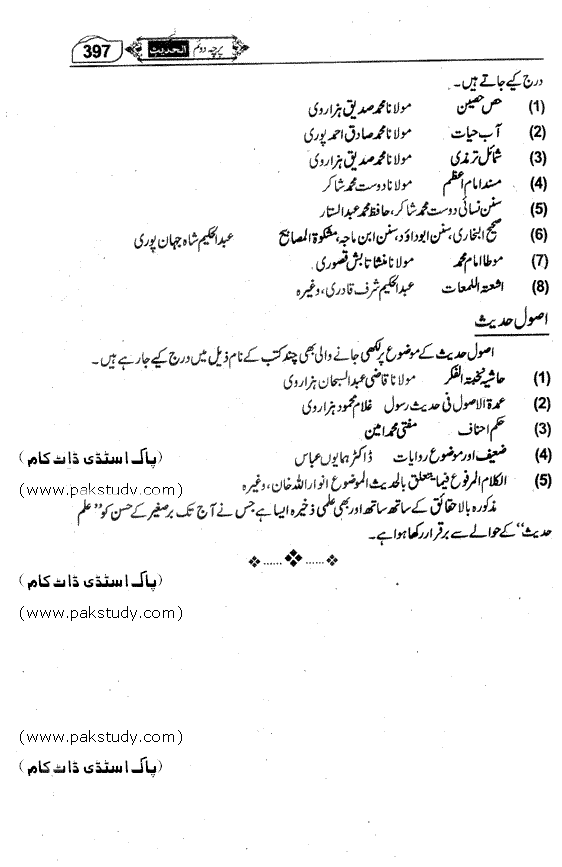 397 پرچہ دوئم الحدیث
درج کیے جاتے ہیں۔
(1) حصن حصین مولانا محمد صدیق ہزاروی
(2) آب حیات مولانا محمد صادق احمد پوری
(3) شمائل ترمذی مولانا محمد صدیق ہزاروی
(4) مسند امام اعظم مولانا دوست محمد شاکر
(5) سنن نسائی دوست محمد شاکر، حافظ محمد عبدالستار
(6) صحیح البخاری، سنن ابوداؤد، سنن ابن ماجہ، مشکوٰۃ المصابیح عبدالحکیم شاہ جہان پوری
(7) موطا امام محمد مولانا منشا تابش قصوری
(8) اشعۃ اللمعات عبدالحکیم شرف قادری، وغیرہ
اصول حدیث
اصول حدیث کے موضوع پر لکھی جانے والی بھی چند کتب کے نام ذیل میں درج کیے جا رہے ہیں۔
(1) حاشیہ نخبۃ الفکر مولانا قاضی عبدالسبحان ہزاروی
(2) عمدۃ الاصول فی حدیث رسول غلام محمود ہزاروی
(3) حکم احناف مفتی محمد امین
(4) ضعیف اور موضوع روایات ڈاکٹر ہمایوں عباس
(پاک اسٹڈی ڈاٹ کام)
(5) الکلام المرفوع فیما یتعلق بالحدیث الموضوع انوار اللہ خان، وغیرہ
(www.pakstudy.com)
مذکورہ بالا حقائق کے ساتھ ساتھ اور بھی علمی ذخیرہ ایسا ہے جس نے آج تک برصغیر کے حسن کو ”علم
حدیث“ کے حوالے سے برقرار رکھا ہوا ہے۔
(پاک اسٹڈی ڈاٹ کام)
(www.pakstudy.com)
(www.pakstudy.com)
(پاک اسٹڈی ڈاٹ کام)